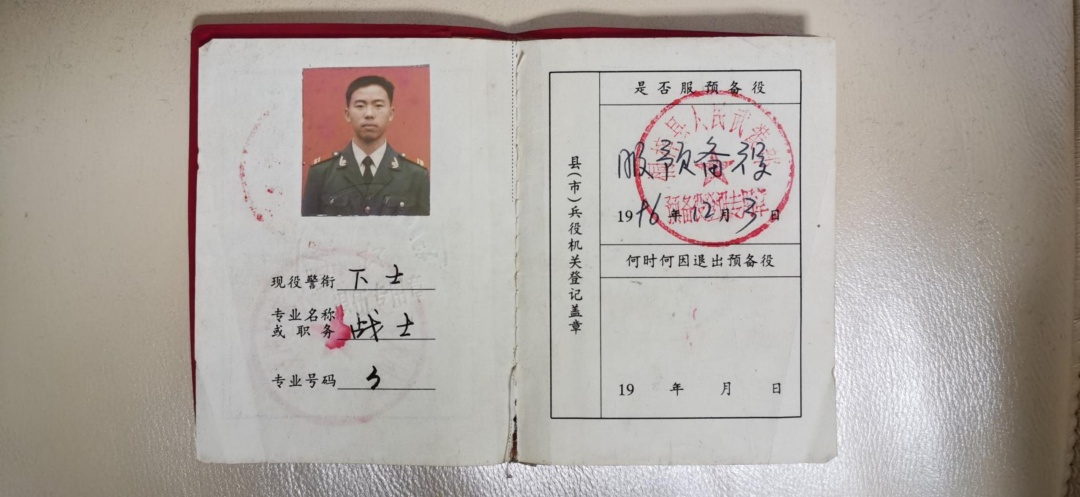 现役警衔 下士
专业名称
或职务 战士
专业号码 3
县(市)兵役机关登记盖章
是否服预备役
县人民武装部
服预备役
预备役登记专用章
1996年12月3日
何时何因退出预备役
19 年 月 日